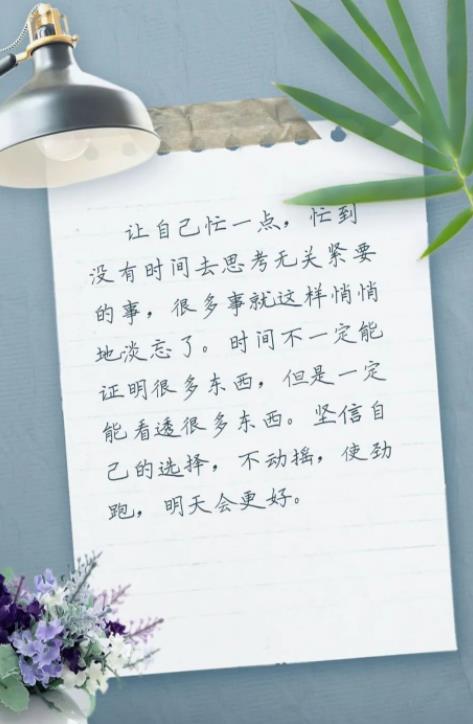 让自己忙一点，忙到
没有时间去思考无关紧要
的事，很多事就这样悄悄
地淡忘了。时间不一定能
证明很多东西，但是一定
能看透很多东西。坚信自
己的选择，不动摇，使劲
跑，明天会更好。